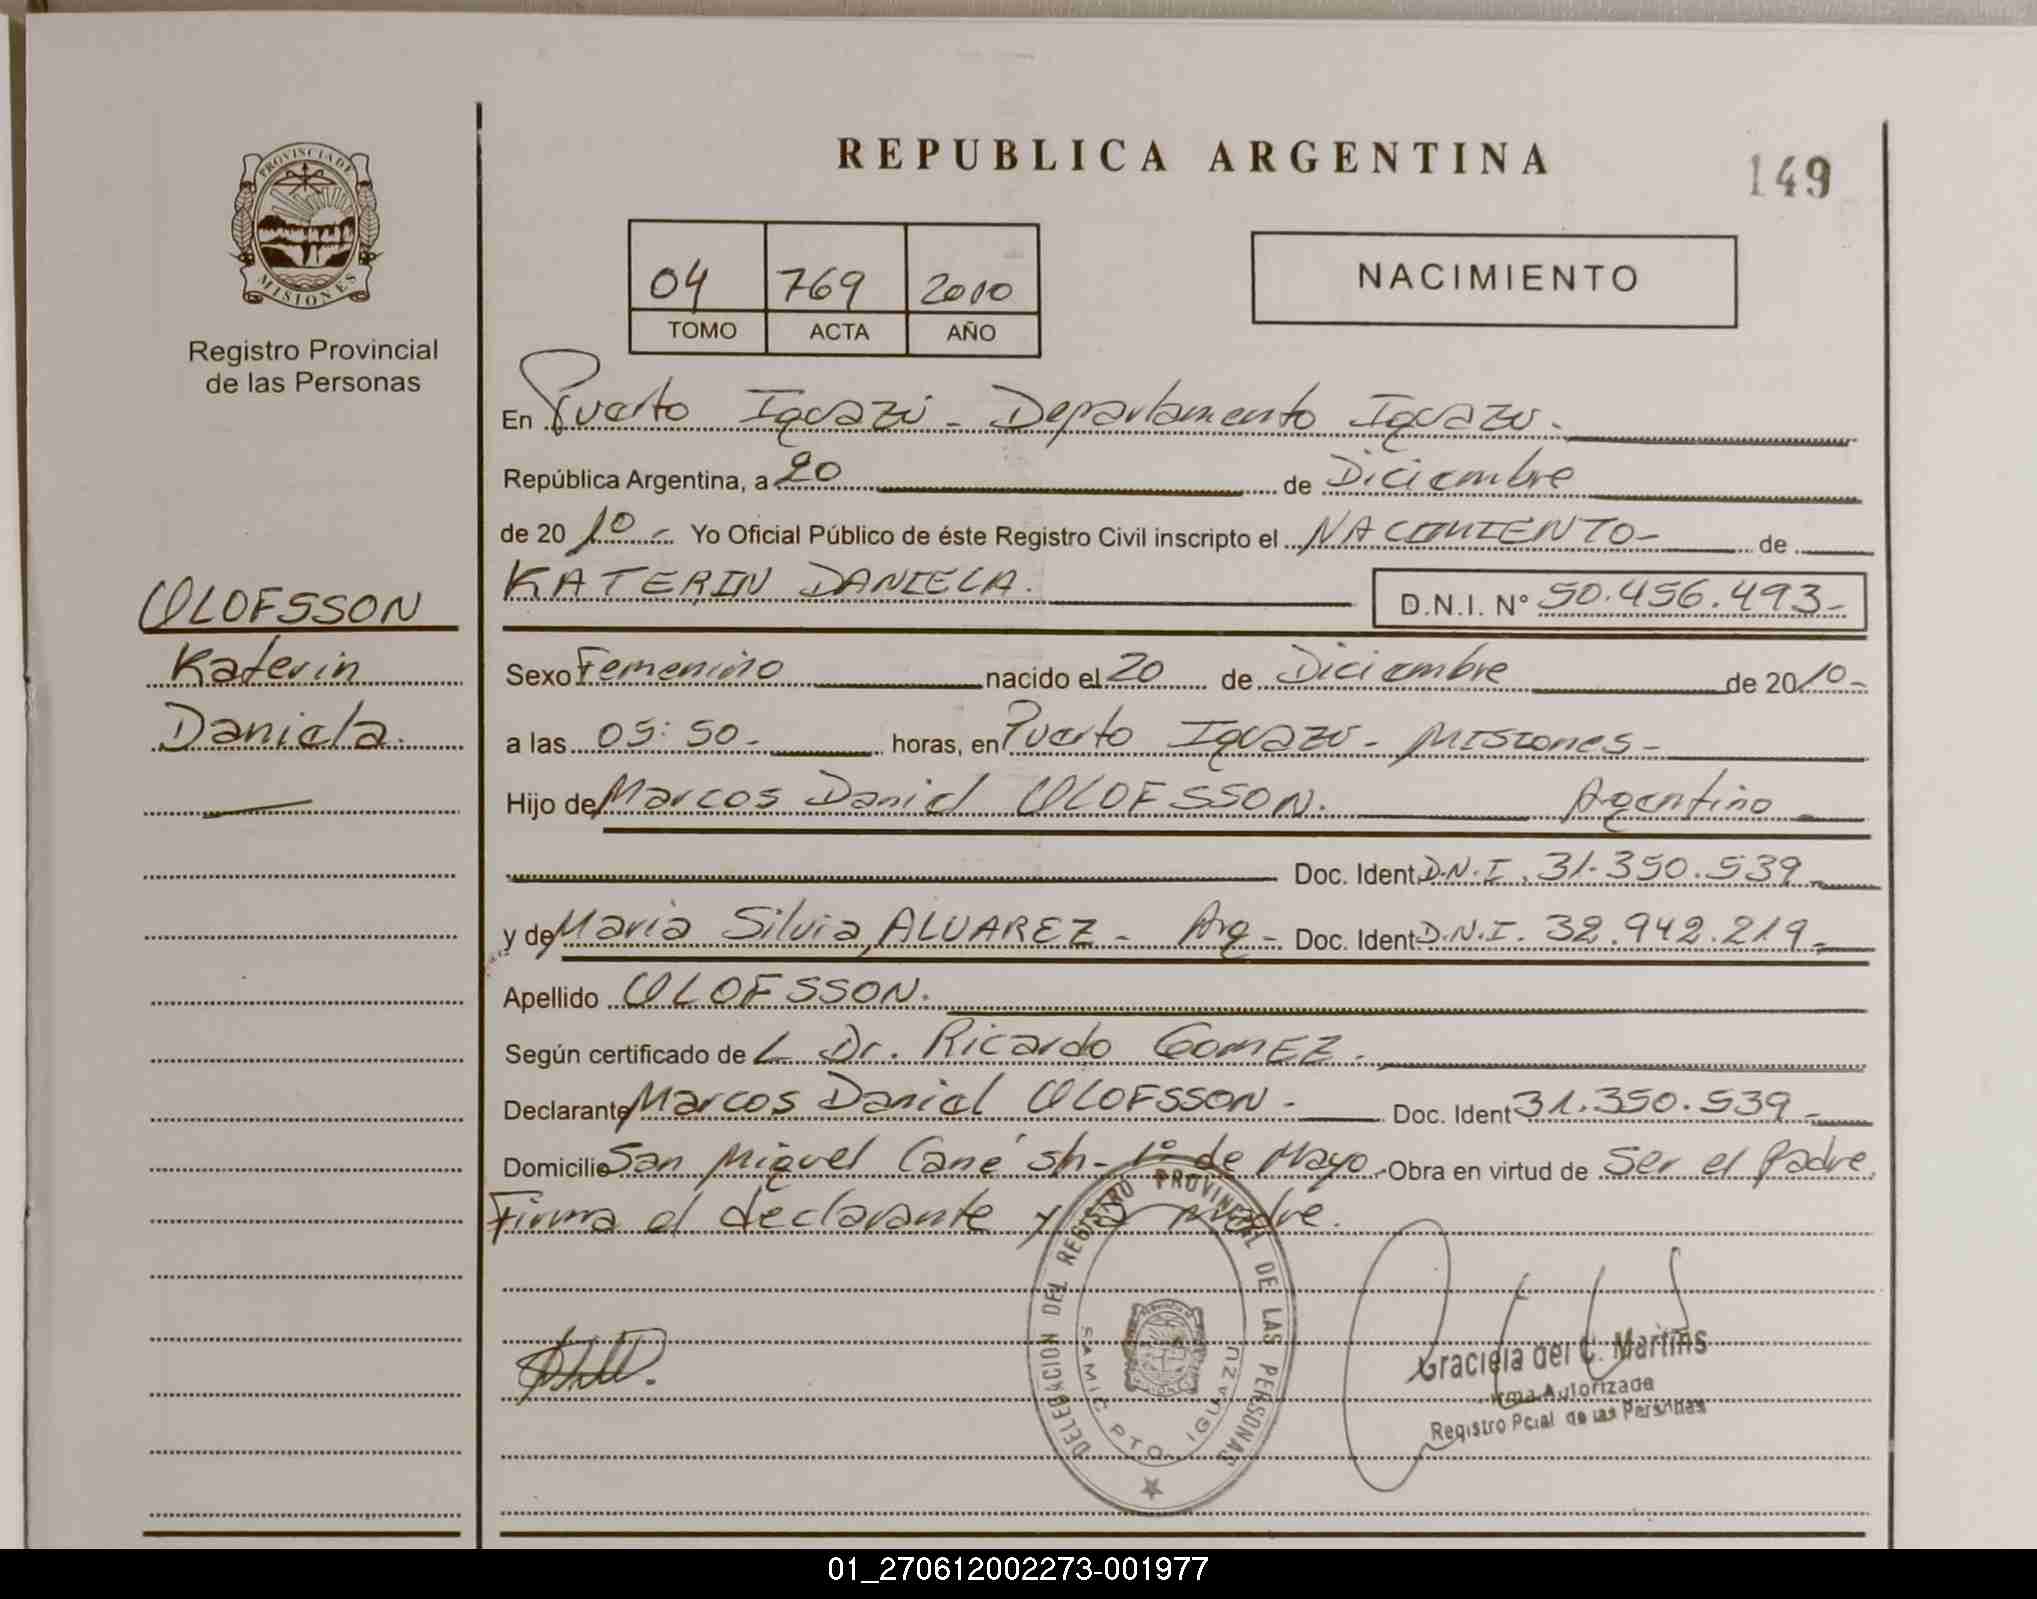 PROVINCIA DE
MISIONES
Registro Provincial
de las Personas
OLOFSSON
Katerin
Daniela.
REPUBLICA ARGENTINA
149
04 769 2010
TOMO ACTA AÑO
NACIMIENTO
En Puerto Iguazú - Departamento Iguazú.
República Argentina, a 20 de Diciembre
de 2010.- Yo Oficial Público de éste Registro Civil inscripto el NACIMIENTO- de
KATERIN DANIELA. D.N.I. Nº 50.456.493-
Sexo Femenino nacido el 20 de Diciembre de 2010-
a las 05:50- horas, en Puerto Iguazú - Misiones-
Hijo de Marcos Daniel OLOFSSON. Argentino
Doc. Ident. D.N.I. 31.350.539-
y de Maria Silvia ALVAREZ - Arg - Doc. Ident. D.N.I. 32.942.219-
Apellido OLOFSSON.
Según certificado de L Dr. Ricardo GOMEZ.
Declarante Marcos Daniel OLOFSSON - Doc. Ident 31.350.539-
Domicilio San Miguel Cané sh- 1º de Mayo. Obra en virtud de Ser el Padre.
Firma el declarante y la madre.
DELEGACION DEL REGISTRO PROVINCIAL DE LAS PERSONAS
SAMIC PTO. IGUAZU
Graciela del C. Martins
Firma Autorizada
Registro Pcial de las Personas
01_270612002273-001977